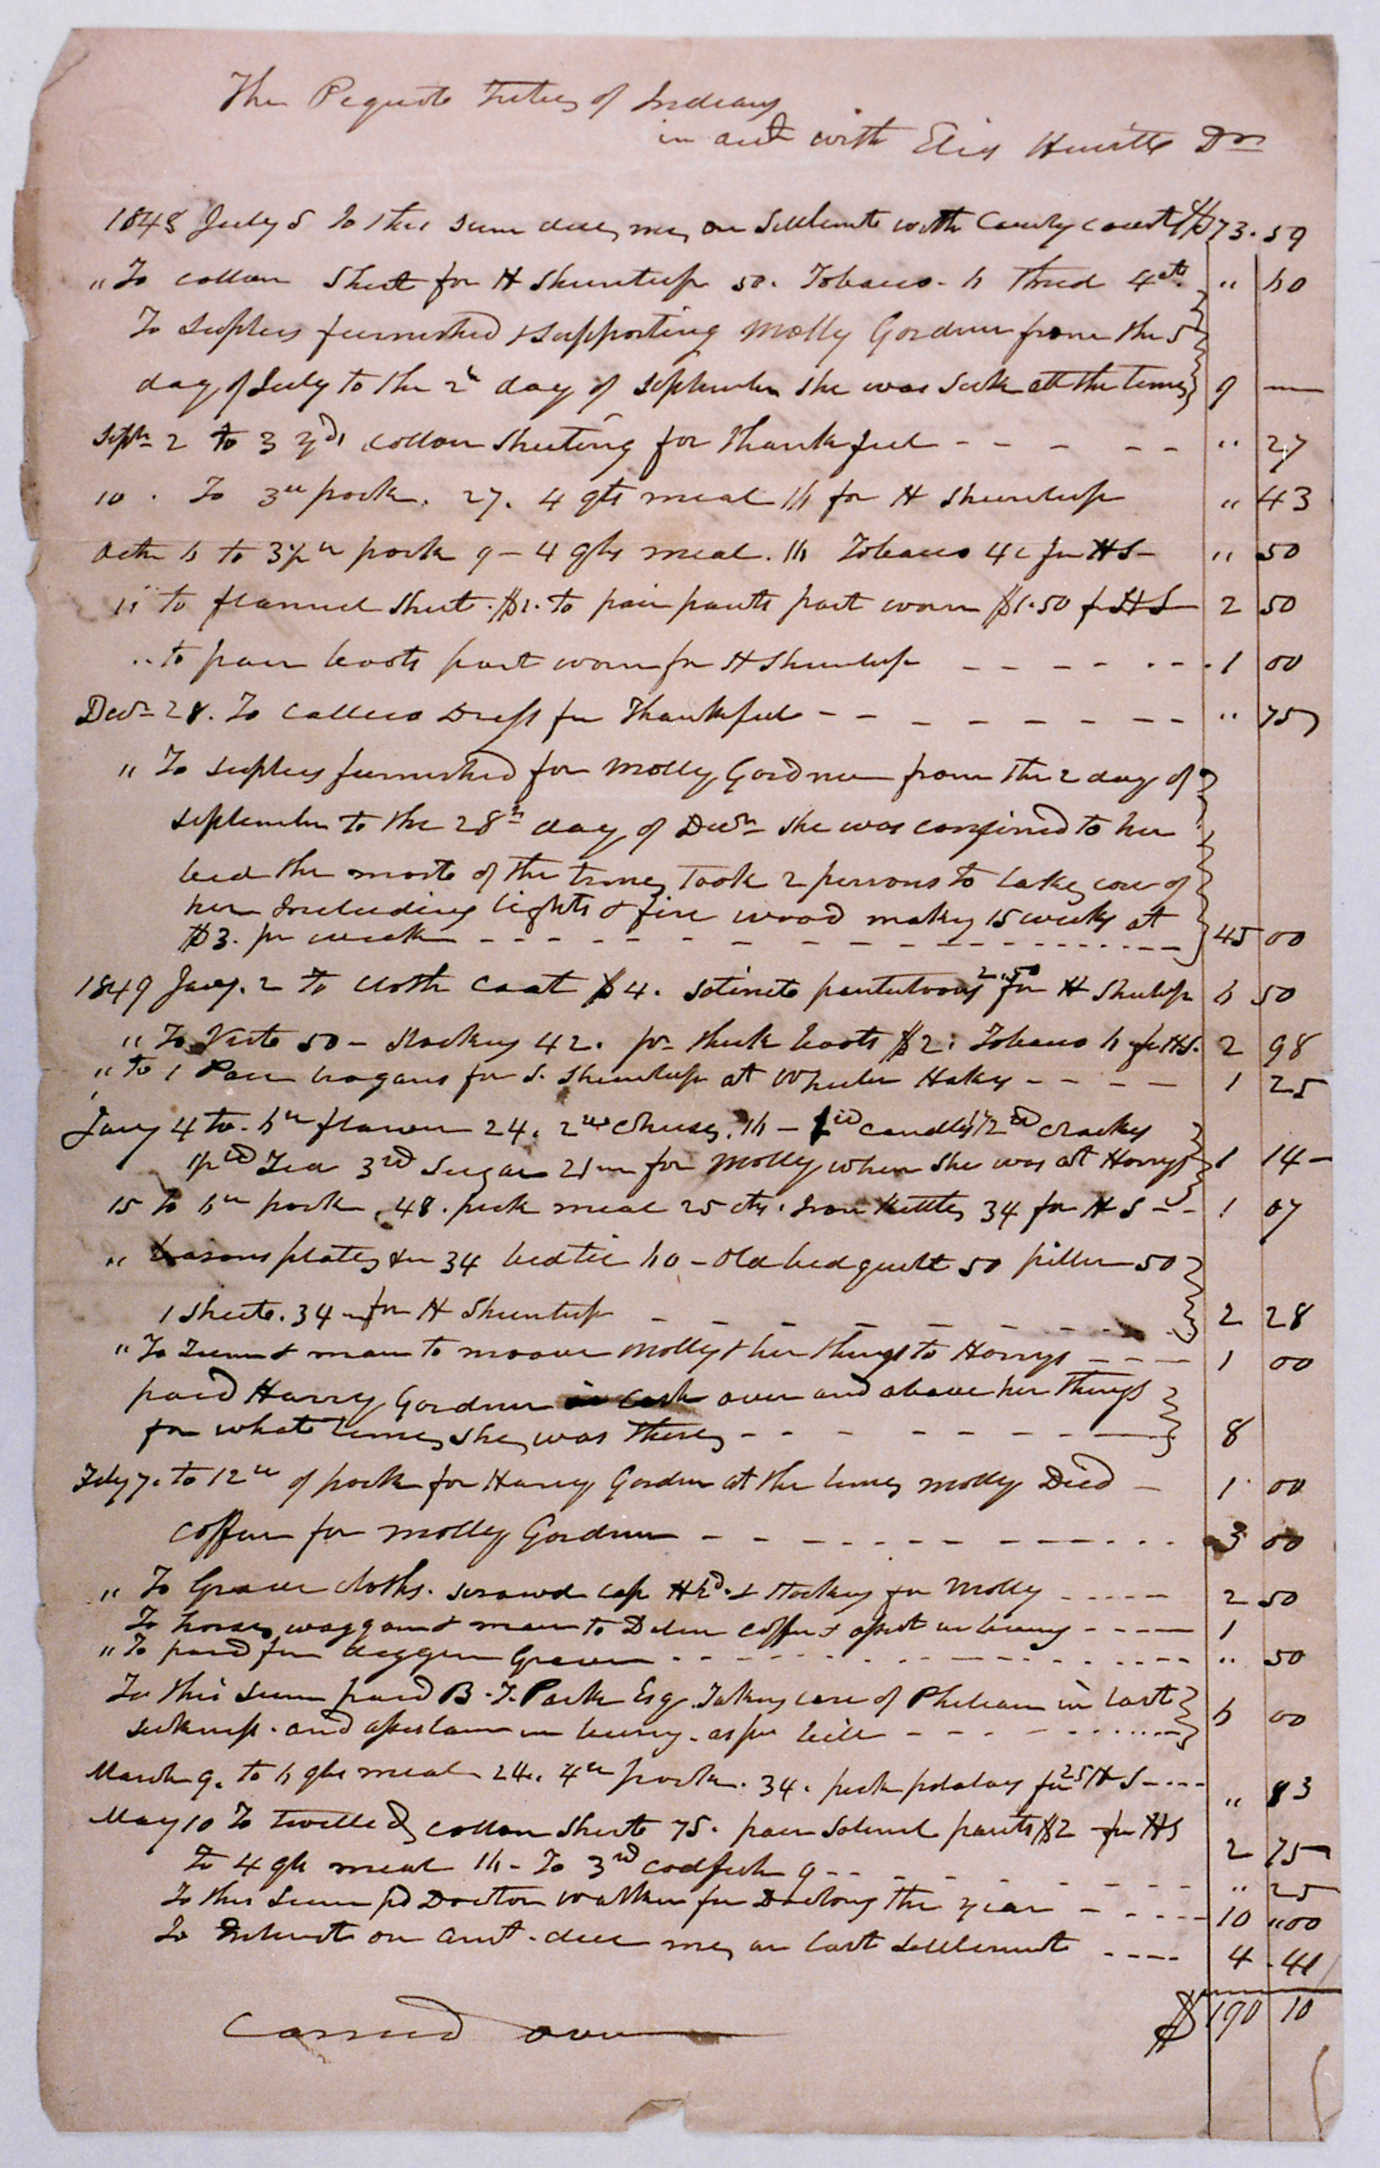 The Pequote Tribe of Indians
in acct with Elias Hewitt Dr
1848 July 5 to this sum due me on Settlement with County court $73.59
" To cotton Shirt for H Shuntup 50. Tobacco - 6 thred 4 cts " 60
To suplies furnished & supporting Molly Gordner from the 5
day of July to the 2d day of September she was Sick at the time 9 —
Sept 2 to 3 yds cotton Sheeting for Thankfull - - - - - " 27
10 . To 3 lb pork . 27. 4 qts meal 16 for H Shuntup " 43
Octr 6 to 3½ lb pork - 4 qts meal . 16 Tobacco 4c for HS - " 50
11 to flannel Shirt . $1. to pair pants part worn $1.50 for HS 2 50
" to pair boots part worn for H Shuntup - - - - - - - 1 00
Decr 28. To callico Dress for Thankfull - - - - - - - - " 75
" To suplies furnished for Molly Gordner from the 2 day of
September to the 28th day of Decr she was confined to her
bed the moste of the time, Took 2 persons to take care of
her Including lights & fire wood making 15 weeks at
$3. pr week - - - - - - - - - - - 45 00
1849 Jany. 2 to cloth coat $4. Satinete pantaloons 2.50 for H Shuntup 6 50
" To Veste 50 - Stockings 42. pr thick boots $2. Tobacco 6 for HS. 2 98
" to 1 Pair brogans for S. Shuntup at Wheeler Hakes - - - - 1 25
Jany 4 to - 6 lb flower 24. 2 lb cheese . 16 - 1 lb candles 2 lb crackes
½ lb Tea 3 lb Sugar 21 for Molly when she was at Harrys 1 14 -
15 to 6 lb pork , 48 . peck meal 25 cts . Iron Kettle 34 for H S - - 1 07
" basons plates 34 bedtic 60 - old bed quilt 50 piller 50
1 Sheete . 34 for H Shuntup - - - - - - 2 28
" To Team & man to moove Molly & her things to Harrys - - - - 1 00
paid Harry Gordner in cash over and above her things
for what time she was there - - - - - - - 8
Feby 7. to 12 lb of pork for Harry Gordner at the time Molly Died - 1 00
coffin for Molly Gordner - - - - - - - - - - - 3 00
" To Grave cloths . cap & Stockings for Molly - - - - - 2 50
To horse, waggon & man to coffin & assist in bering - - - - - 1
" To paid for diggen Grave - - - - - - - - - - - " 50
To this Sum paid B. F. Park Esq. Taking care of in last
sickness . and assistance in bering . as per bill - - - - - 6 00
March 9. to 6 qts meal 24. 4 lb pork . 34 . peck potatoes 25 for H S - - - " 83
May 10 To twilled cotton Shirte 75. pair Satinet pants $2 for HS 2 75
to 4 qts meal 16 - To 3 lb codfish 9 - - - - - - - - " 25
To this Sum pd Doctor Walker for Doctoring the year - - - - - 10 "00
To Interest on acnt . due me on last Settlement - - - - 4 . 41
Carried over $190 10